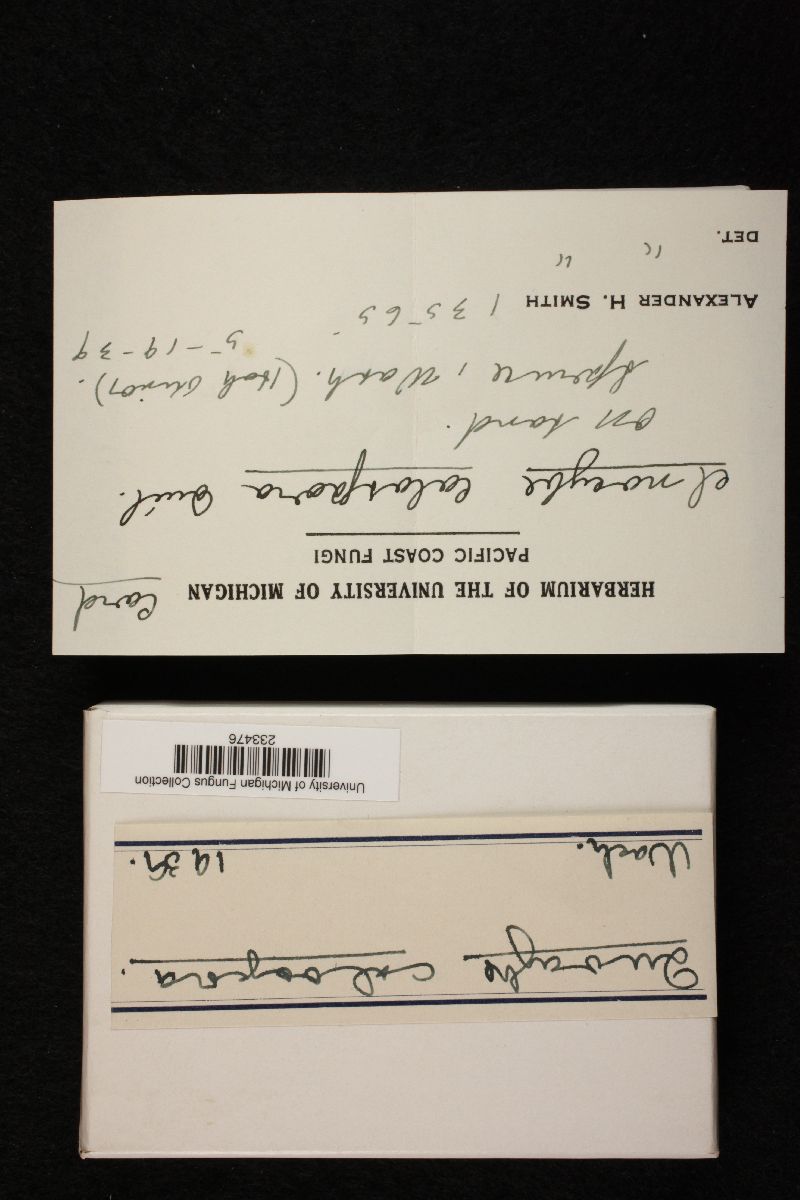 Card
HERBARIUM OF THE UNIVERSITY OF MICHIGAN
PACIFIC COAST FUNGI
Inocybe calospora Quél.
on sand.
Spruce, Wash. (Hoh River).
5-19-39
ALEXANDER H. SMITH 13565
DET. " "
Inocybe calospora.
Wash. 1939.
University of Michigan Fungus Collection
233476